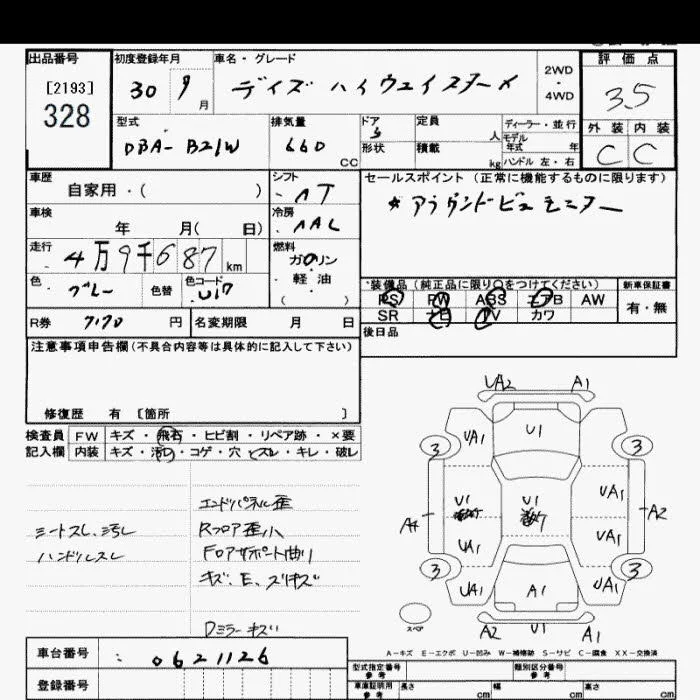 出品番号
[2193]
328
初度登録年月
30 9月
車名・グレード
デイズ ハイウェイスターX
2WD・4WD
評価点
3.5
外装 内装
C C
型式
DBA- B21W
排気量
660 cc
ドア
5
形状
定員
人
積載
kg
ディーラー・並行
モデル年式 年
ハンドル 左・右
車歴
自家用・( )
シフト
AT
車検
年 月( 日)
冷房
AAC
走行
4万9千687 km
燃料
ガソリン
・軽油
( )
色
グレー
色替
色コード
セールスポイント(正常に機能するものに限ります)
アラウンドビューモニター
装備品(純正品に限り○をつけてください)
新車保証書
PS PW ABS エアB AW
SR ナビ TV カワ
有・無
R券 7170 円
名変期限 月 日
後日品
注意事項申告欄(不具合内容等は具体的に記入して下さい)
修復歴 有 [箇所 ]
検査員記入欄
FW キズ・飛石・ヒビ割・リペア跡・×要
内装 キズ・汚れ・コゲ・穴・スレ・キレ・破レ
シートスレ、汚レ
ハンドルスレ
エンドパネル歪
Rフロア歪小
Fコアサポート曲り
キズ、E、スリキズ
Dミラーキズ
UA2 A1
UA1 U1
3 3
U1 U1 UA1
A4 A2
UA1 UA1
3 3
UA1 A1 UA1
スペア
A2 U1
A-キズ E-エクボ U-凹み W-補修跡 S-サビ C-腐食 XX-交換済
車台番号
: 0621126
登録番号
型式指定番号 参考
類別区分番号 参考
車庫証明用 参考
長さ cm 幅 cm 高さ cm